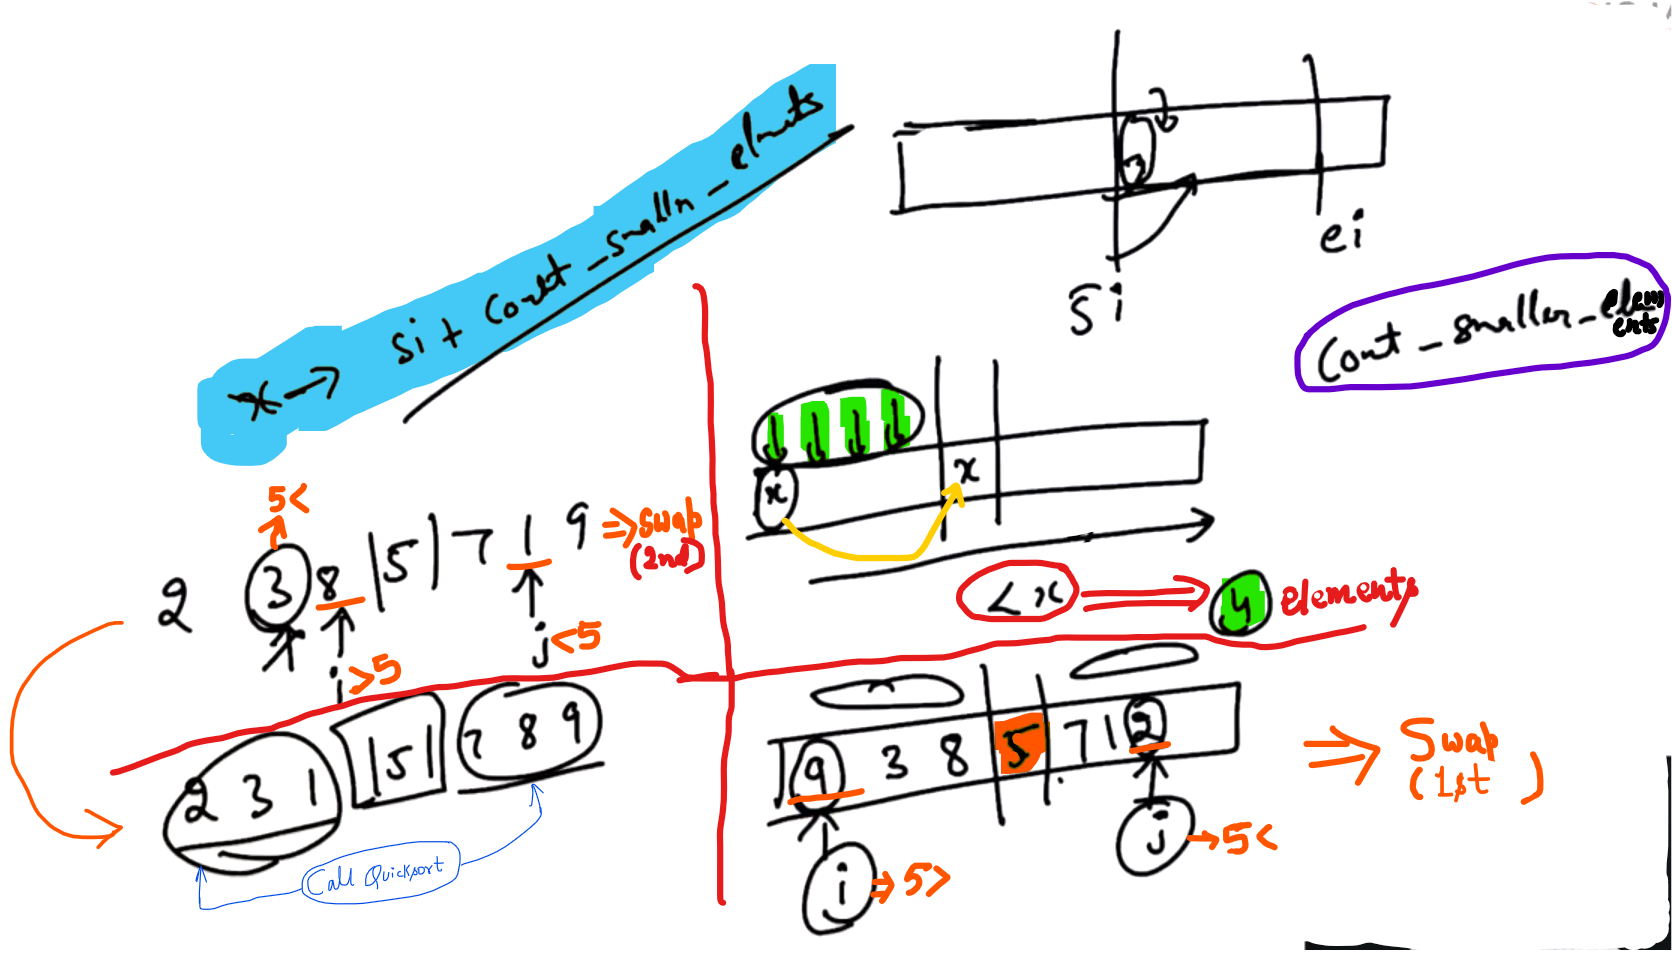 x → si + Count_smaller_elmnts
si
ei
Count_smaller_elem
ents
x
x
< x ⇒ 4 elements
5<
2 3 8 |5| 7 1 9 ⇒ swap
(2nd)
i >5
j <5
2 3 1 |5| 7 8 9
Call Quicksort
9 3 8 5 7 1 2 ⇒ Swap
(1st)
i ⇒ 5>
j → 5<